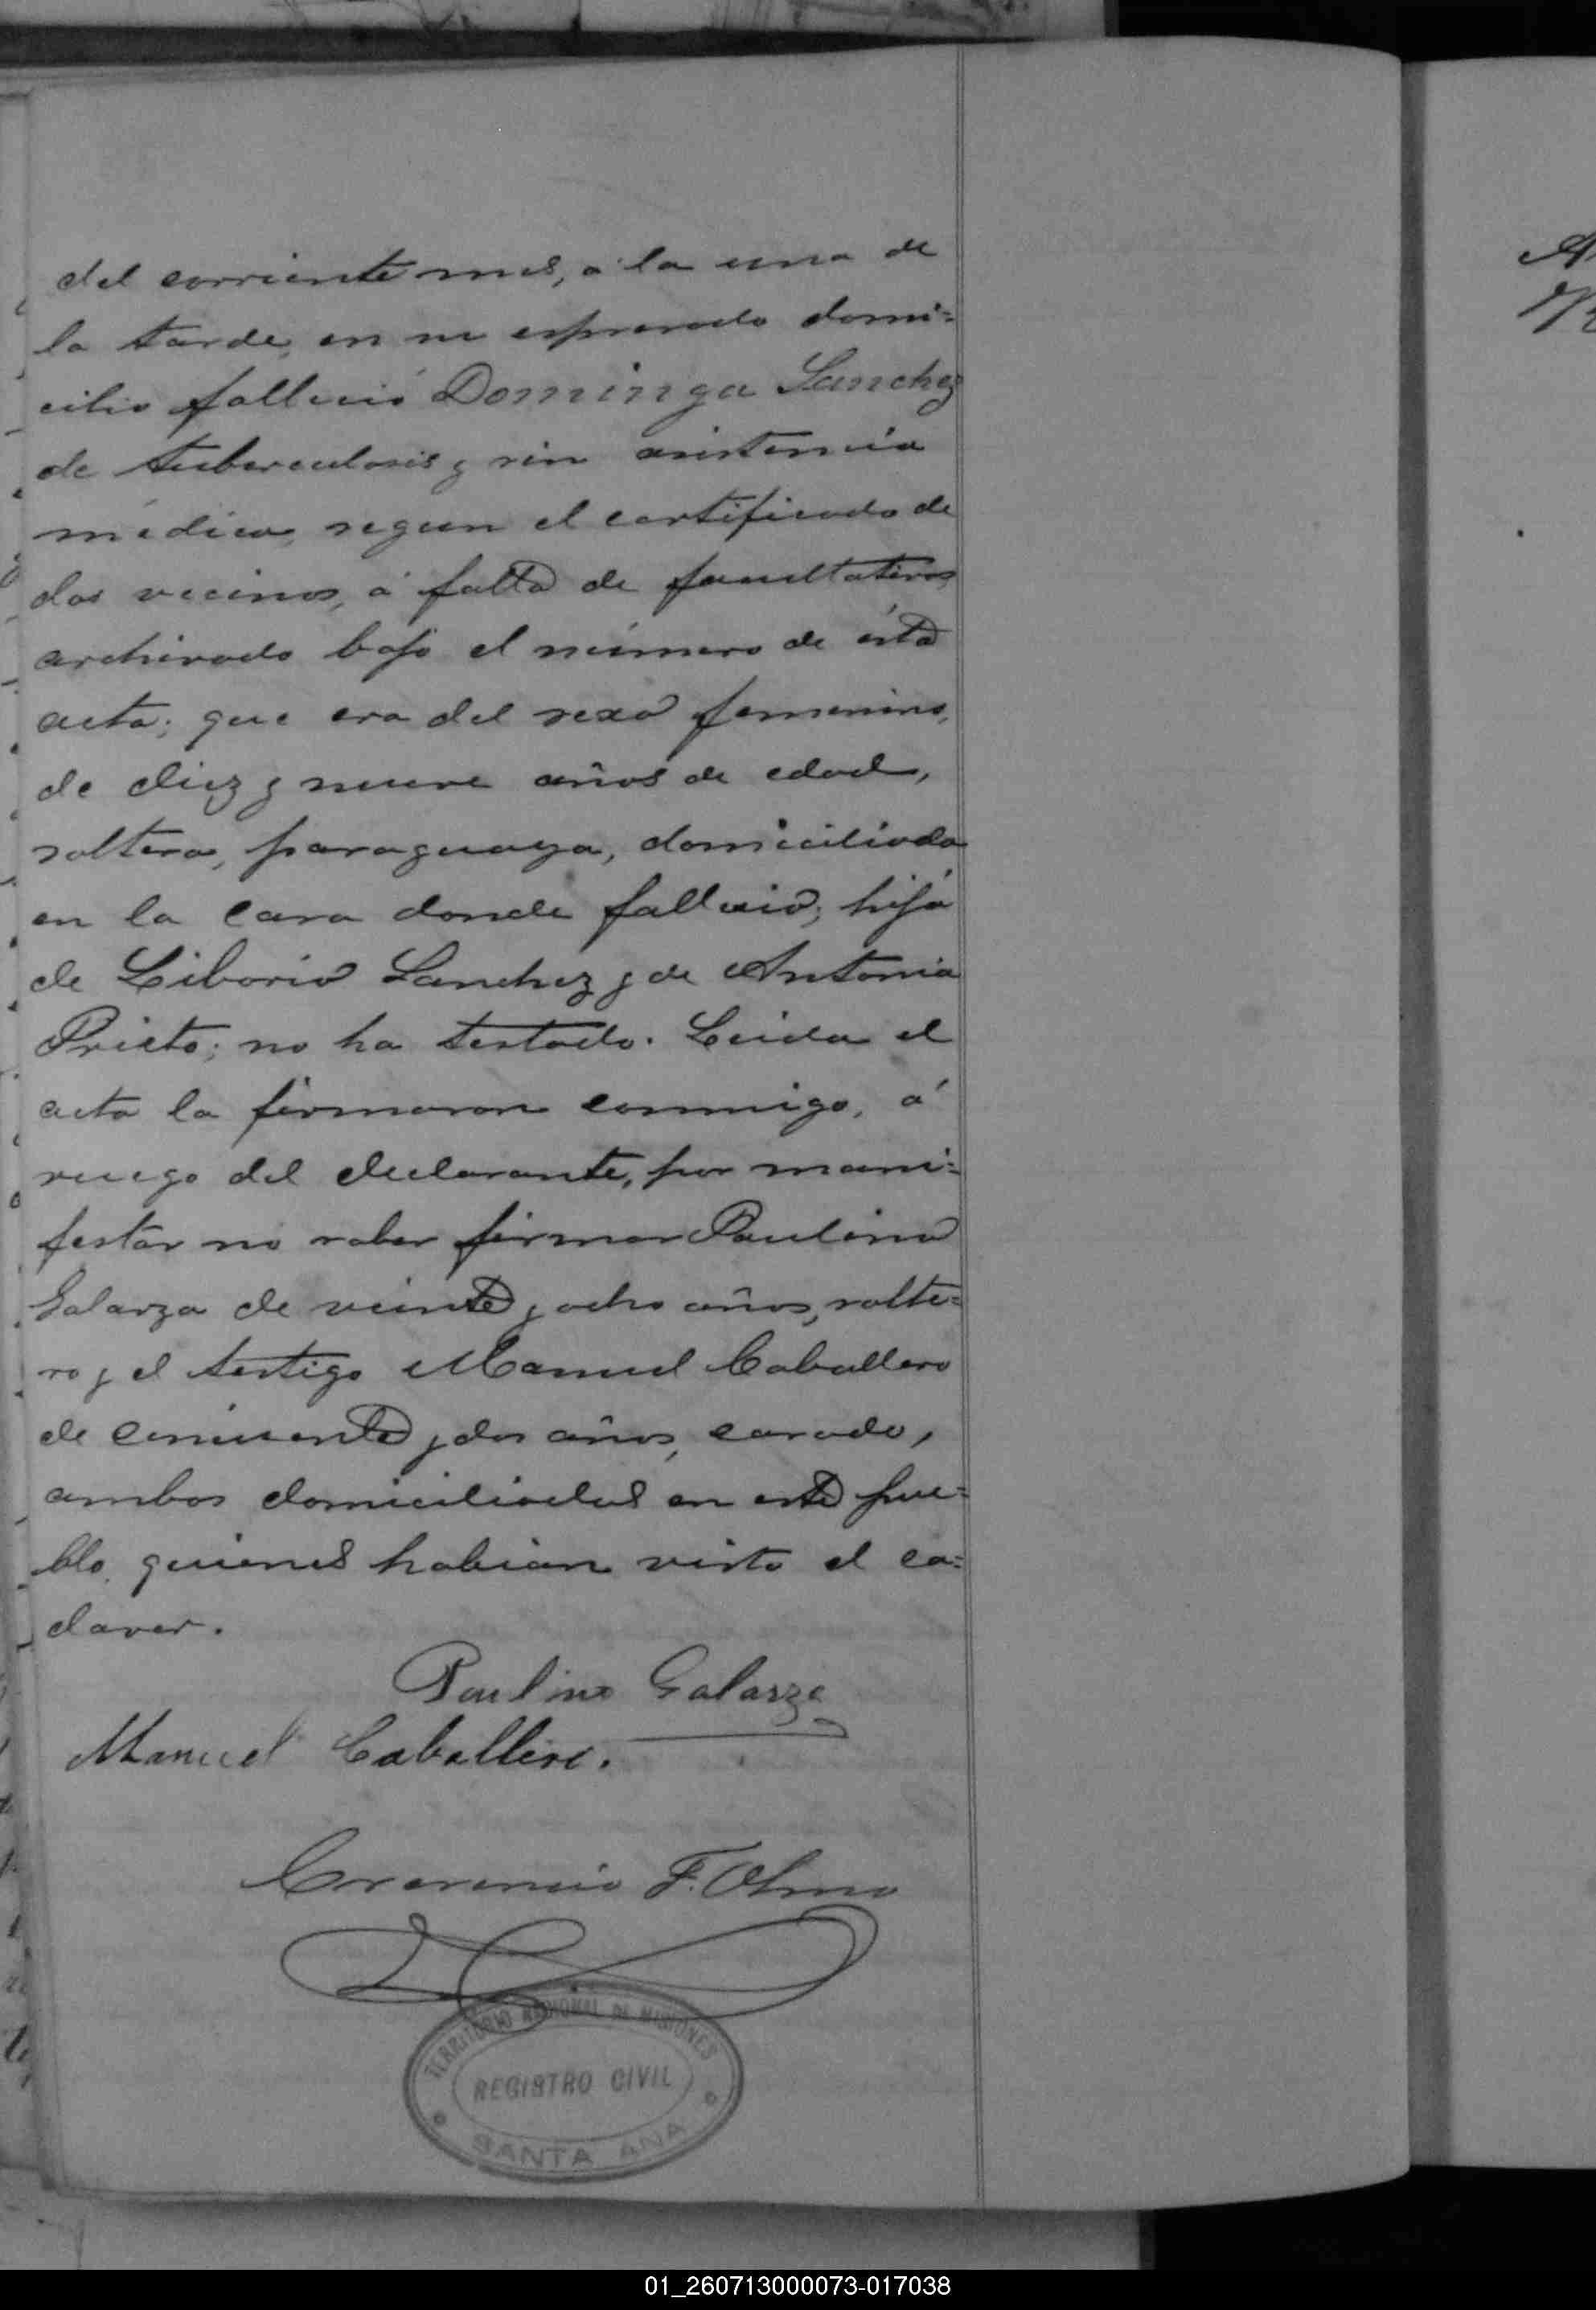 del corriente mes, a la una de
la tarde, en su espresado domi=
cilio falleció Dominga Sanchez
de tuberculosis y sin asistencia
médica, segun el certificado de
dos vecinos, á falta de facultativos,
archivado bajo el número de ésta
acta; que era del sexo femenino,
de diez y nueve años de edad,
soltera, paraguaya, domiciliada
en la casa donde falleció; hija
de Liborio Sanchez y de Antonia
Prieto; no ha testado. Leida el
acta la firmaron conmigo, á
ruego del declarante, por mani=
festar no saber firmar Paulino
Galarza de veinte y ocho años, solte=
ro y el testigo Manuel Caballero
de cincuenta y dos años, casado,
ambos domiciliados en este pue=
blo, quienes habian visto el ca=
daver.
Paulino Galarza
Manuel Caballero.
F. Olmo
TERRITORIO NACIONAL DE MISIONES
REGISTRO CIVIL
SANTA ANA
01_260713000073-017038